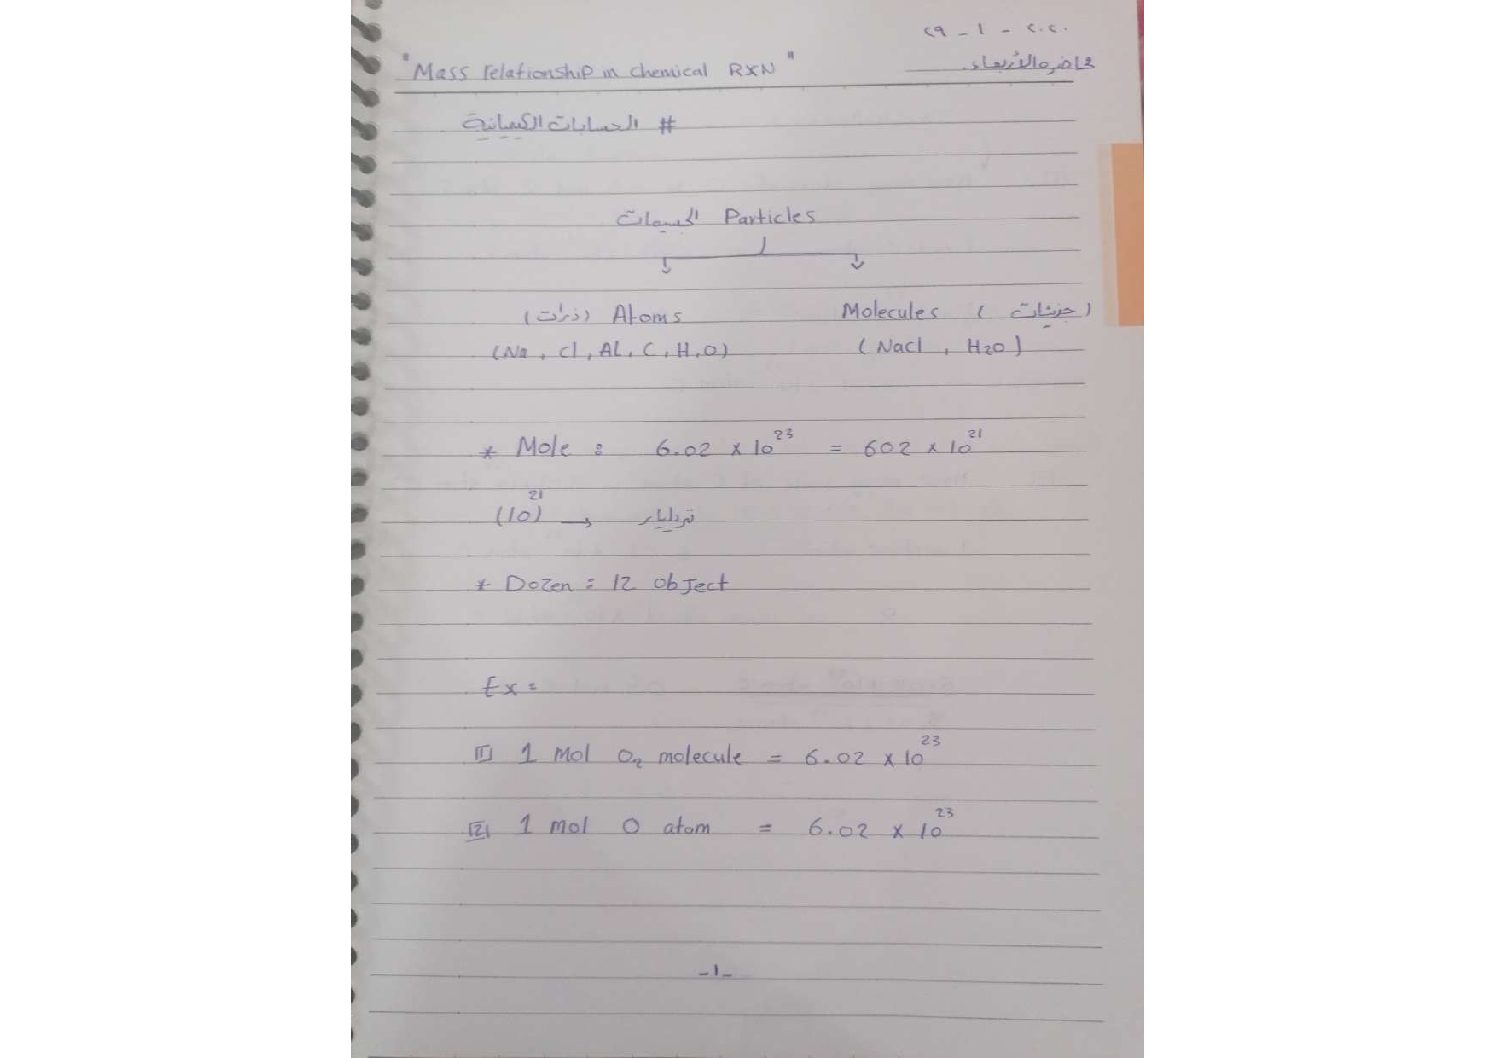 ٢٩ - ١ - ٢٠٢٠
"Mass relationship in chemical RXN" محاضرة الأربعاء
# الحسابات الكيميائية
الجسيمات Particles
(ذرات) Atoms Molecules (جزيئات)
(Na, Cl, Al, C, H, O) (Nacl, H2O)
* Mole: 6.02 x 10^23 = 602 x 10^21
(10)^21 →
* Dozen = 12 object
Ex:
[1] 1 Mol O2 molecule = 6.02 x 10^23
[2] 1 mol O atom = 6.02 x 10^23
-١-